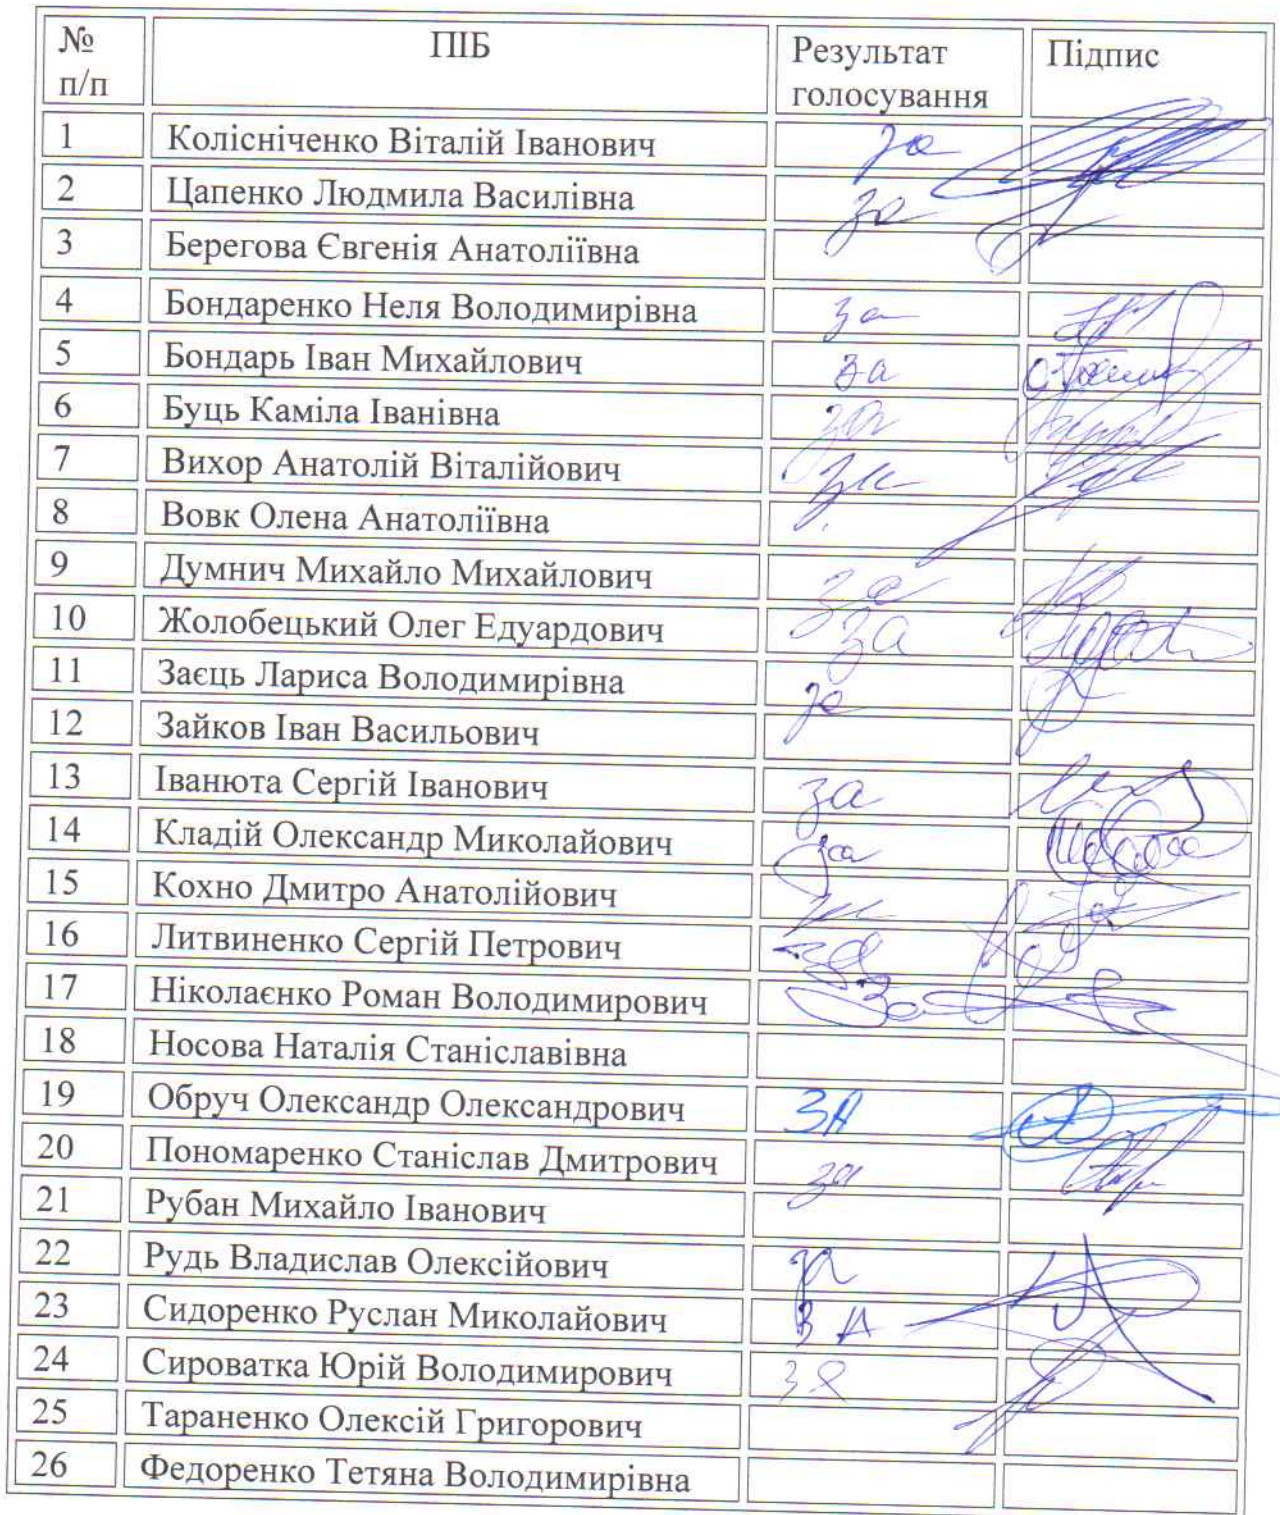 № п/п ПІБ Результат голосування Підпис
1 Колісніченко Віталій Іванович за
2 Цапенко Людмила Василівна за
3 Берегова Євгенія Анатоліївна
4 Бондаренко Неля Володимирівна за
5 Бондарь Іван Михайлович за
6 Буць Каміла Іванівна за
7 Вихор Анатолій Віталійович за
8 Вовк Олена Анатоліївна
9 Думнич Михайло Михайлович за
10 Жолобецький Олег Едуардович за
11 Заєць Лариса Володимирівна за
12 Зайков Іван Васильович
13 Іванюта Сергій Іванович за
14 Кладій Олександр Миколайович за
15 Кохно Дмитро Анатолійович за
16 Литвиненко Сергій Петрович за
17 Ніколаєнко Роман Володимирович за
18 Носова Наталія Станіславівна
19 Обруч Олександр Олександрович ЗА
20 Пономаренко Станіслав Дмитрович за
21 Рубан Михайло Іванович
22 Рудь Владислав Олексійович за
23 Сидоренко Руслан Миколайович ЗА
24 Сироватка Юрій Володимирович за
25 Тараненко Олексій Григорович
26 Федоренко Тетяна Володимирівна